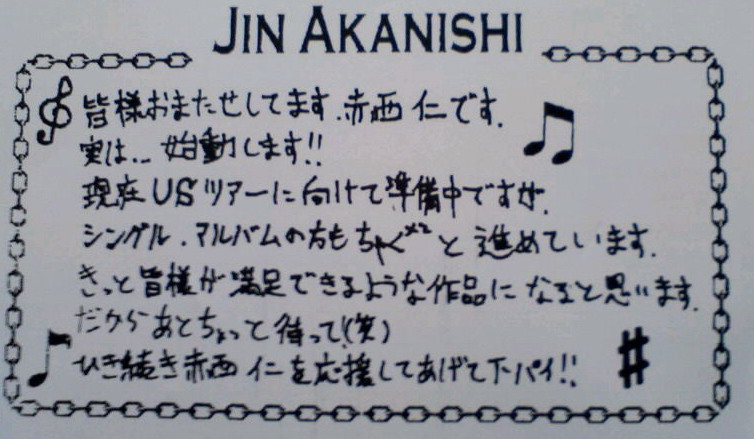 JIN AKANISHI
皆様おまたせしてます.赤西 仁です.
実は... 始動します!!
現在USツアーに向けて準備中ですが.
シングル.アルバムの方もちゃく×2と進めています.
きっと皆様が満足できるような作品になると思います.
だからあとちょっと待って(笑)
ひき続き赤西 仁を応援してあげて下パイ!!